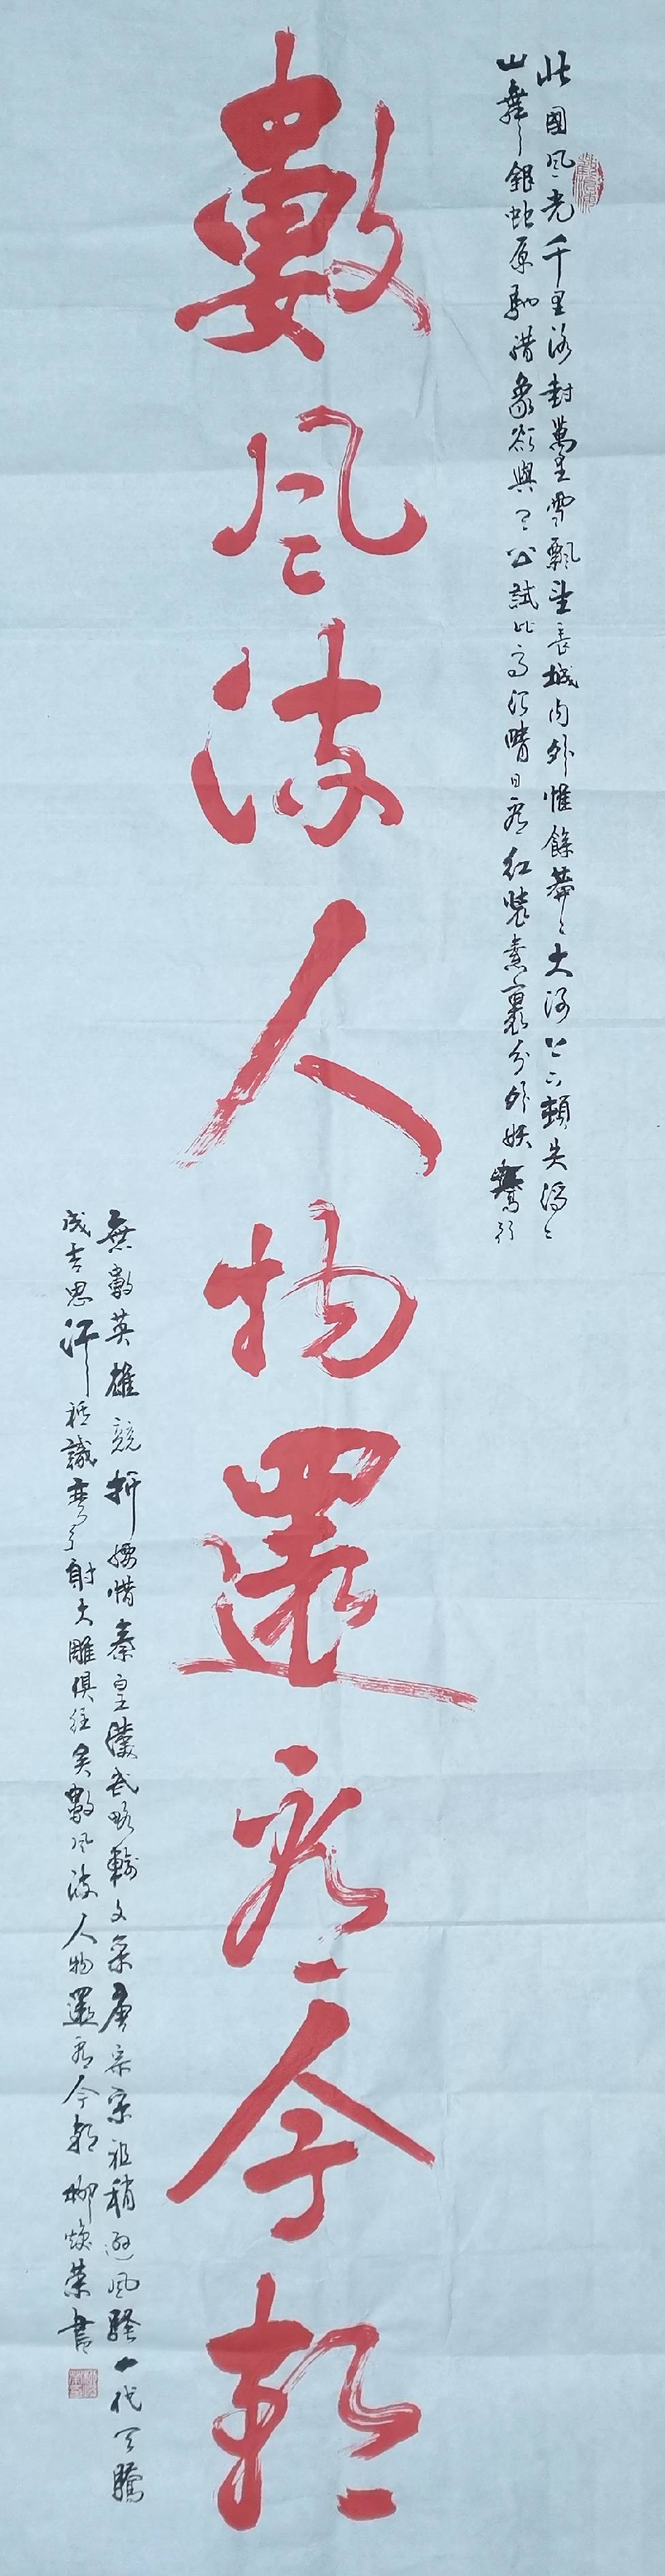 北國風光千里冰封萬里雪飄望長城內外惟餘莽々大河上下頓失滔々
山舞銀蛇原馳蜡象欲與天公試比高須晴日看紅裝素裹分外妖
數風流人物還看今朝
無數英雄競折腰惜秦皇漢武略輸文采唐宗宋祖稍遜風騷一代天驕
成吉思汗祗識彎弓射大雕俱往矣數風流人物還看今朝 柳煥榮書